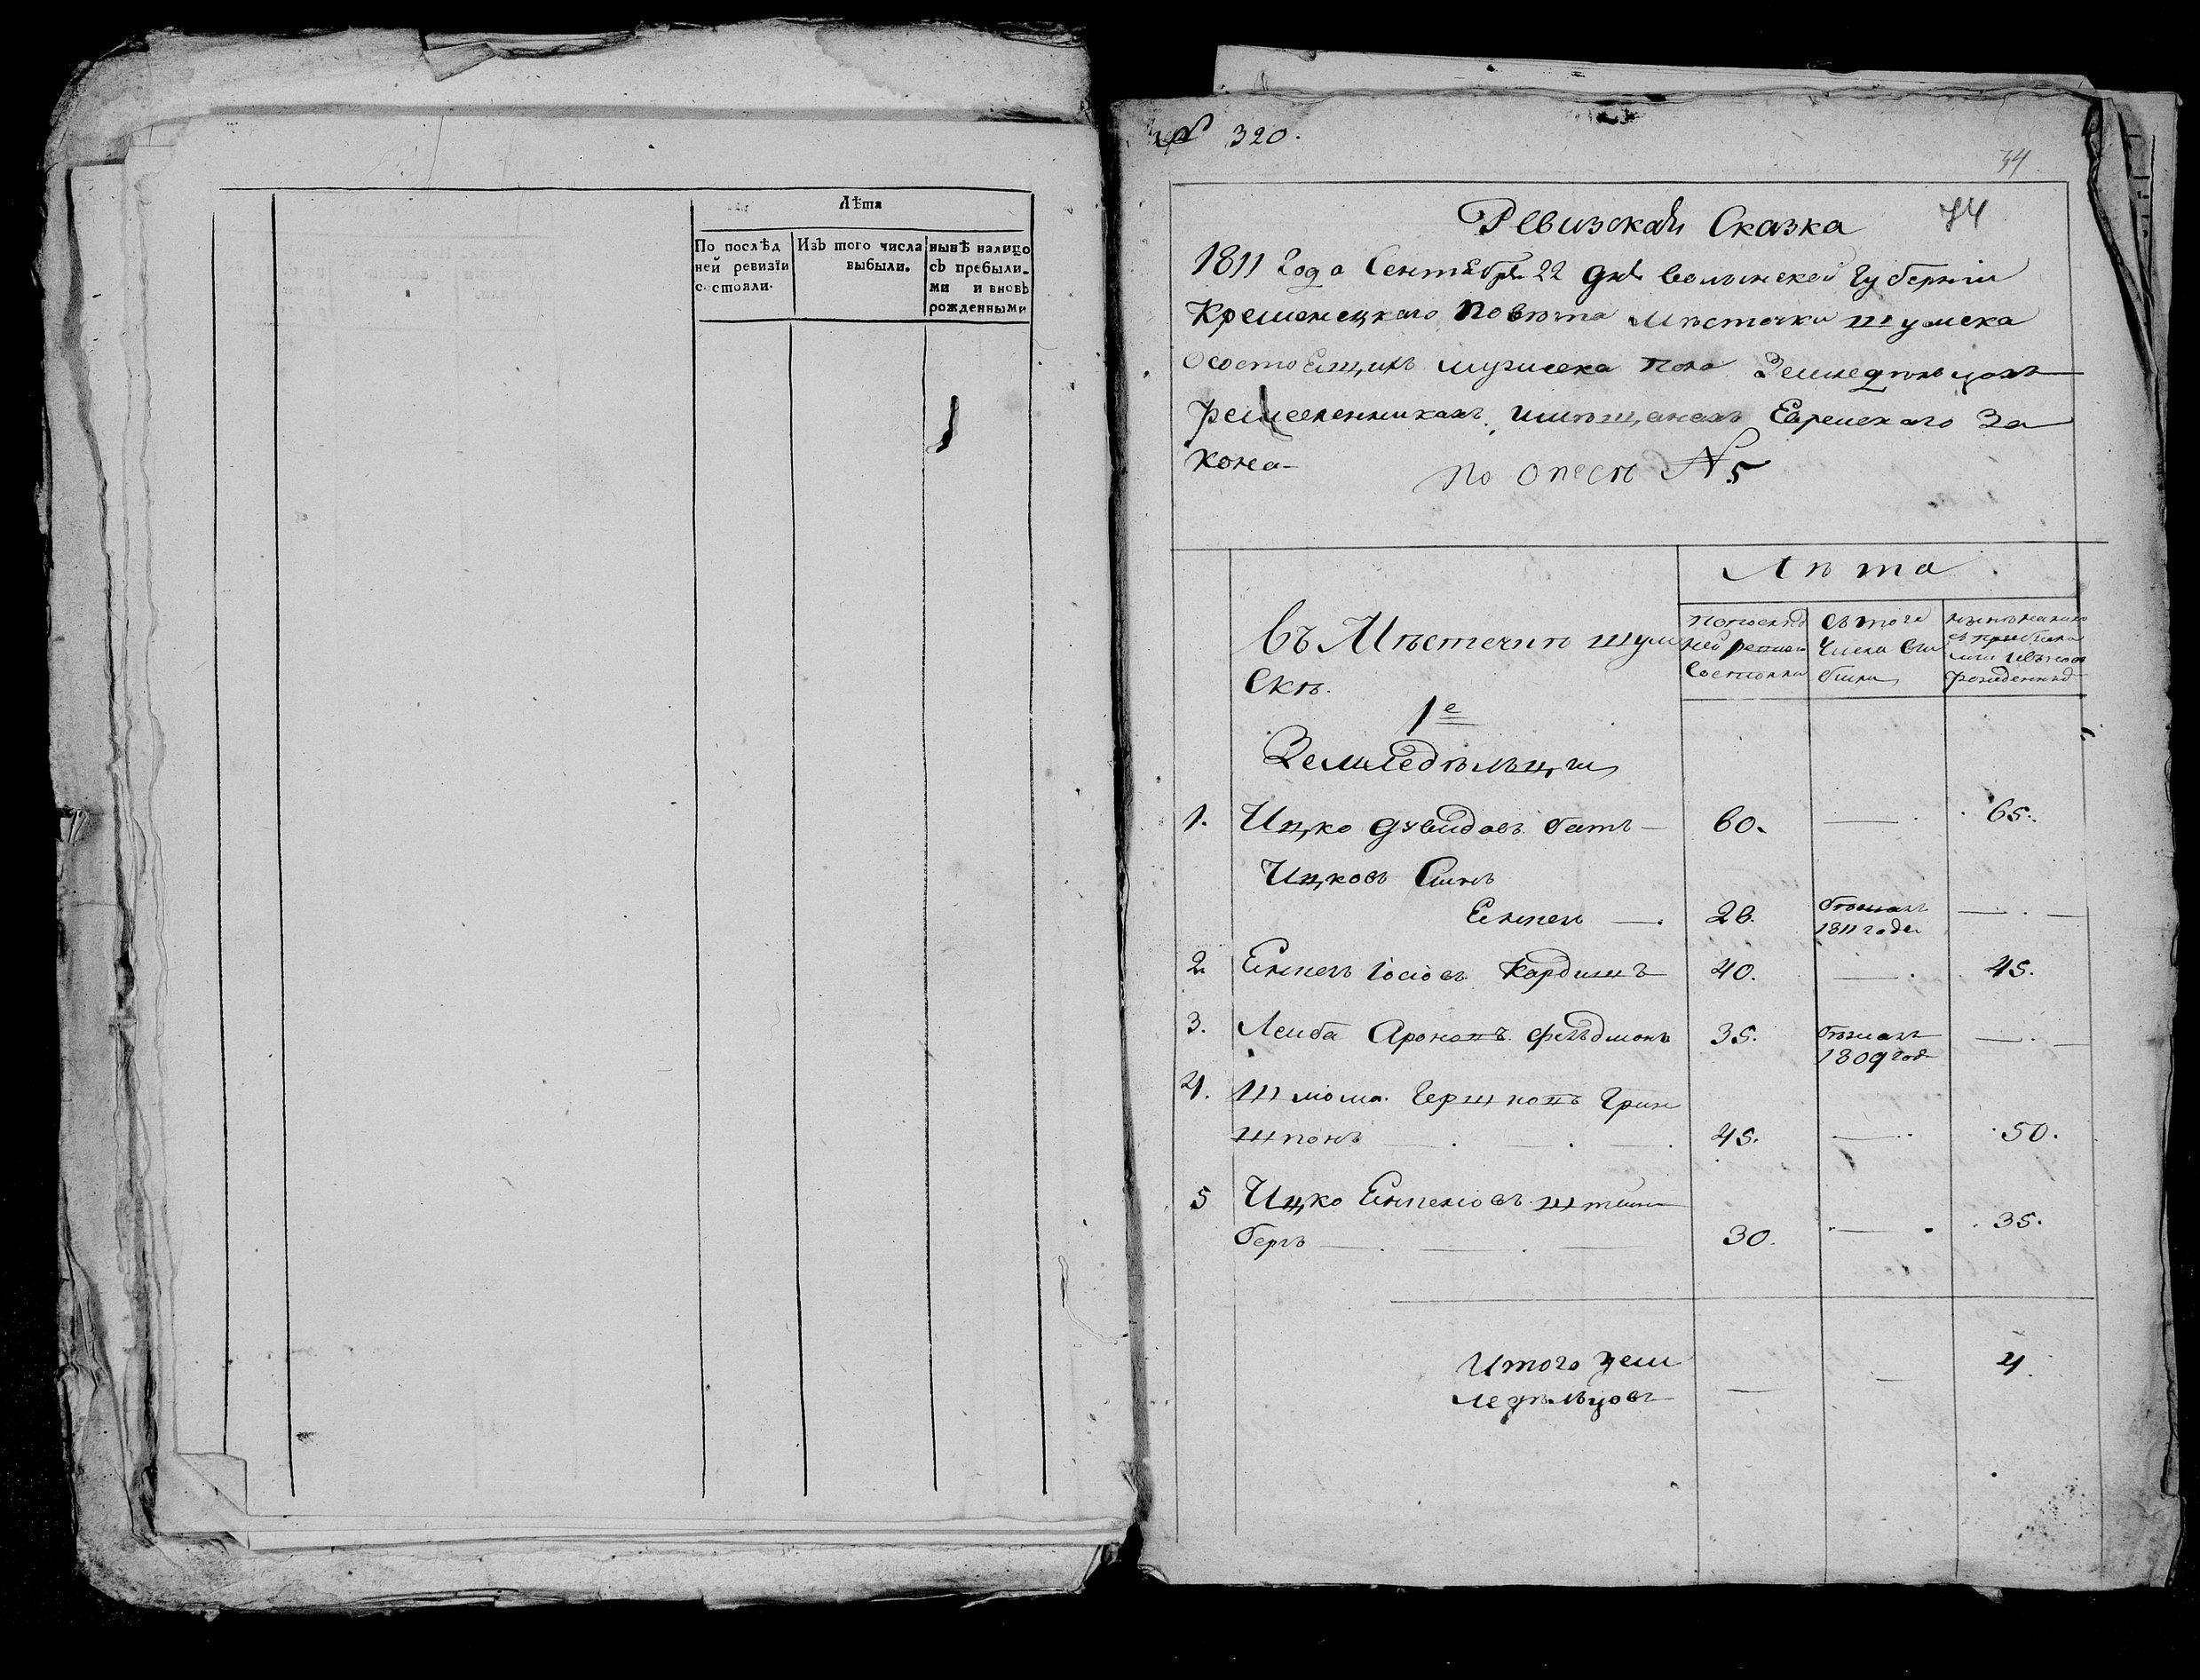 Лѣта
По послѣд
ней ревизїи
состояли.
Изъ того числа
выбыли.
нынѣ налицо
съ прибыли-
ми и вновь
рожденными
№ 320.
34
74
Ревизская Сказка
1811 года Сентября 22 дня волынской губернїи
Кременецкаго Повѣта Мѣстечка шумска
Осостоящихъ мужеска пола Земледѣльцахъ
ремесленникахъ имѣщанахъ Еврейскаго За
кона-
По описѣ № 5
въ Мѣстечкѣ шум
скѣ.
Лѣта
попослѣд
ней ревизіи
Состояли
съ того
Числа вы
были
нынѣ налицо
съ прибыли
ми ивновь
рожденными
1е
Земледѣльци
1. Ицко давидовъ батъ — 60. — 65.
Ицковъ Сынъ
Еннель — 26. бѣжалъ 1811 года —
2. Еннель Іосіовъ Кардишъ 40. — 45.
3. Лейба Ароновъ фельдмонъ 35. бѣжалъ 1809 год —
4. Шлома Гершковъ Грин
шпонъ — 45. — 50.
5 Ицко Еннеліовъ штейн
бергъ — 30. — 35.
Итого Зем
ледѣльцовъ — — 4